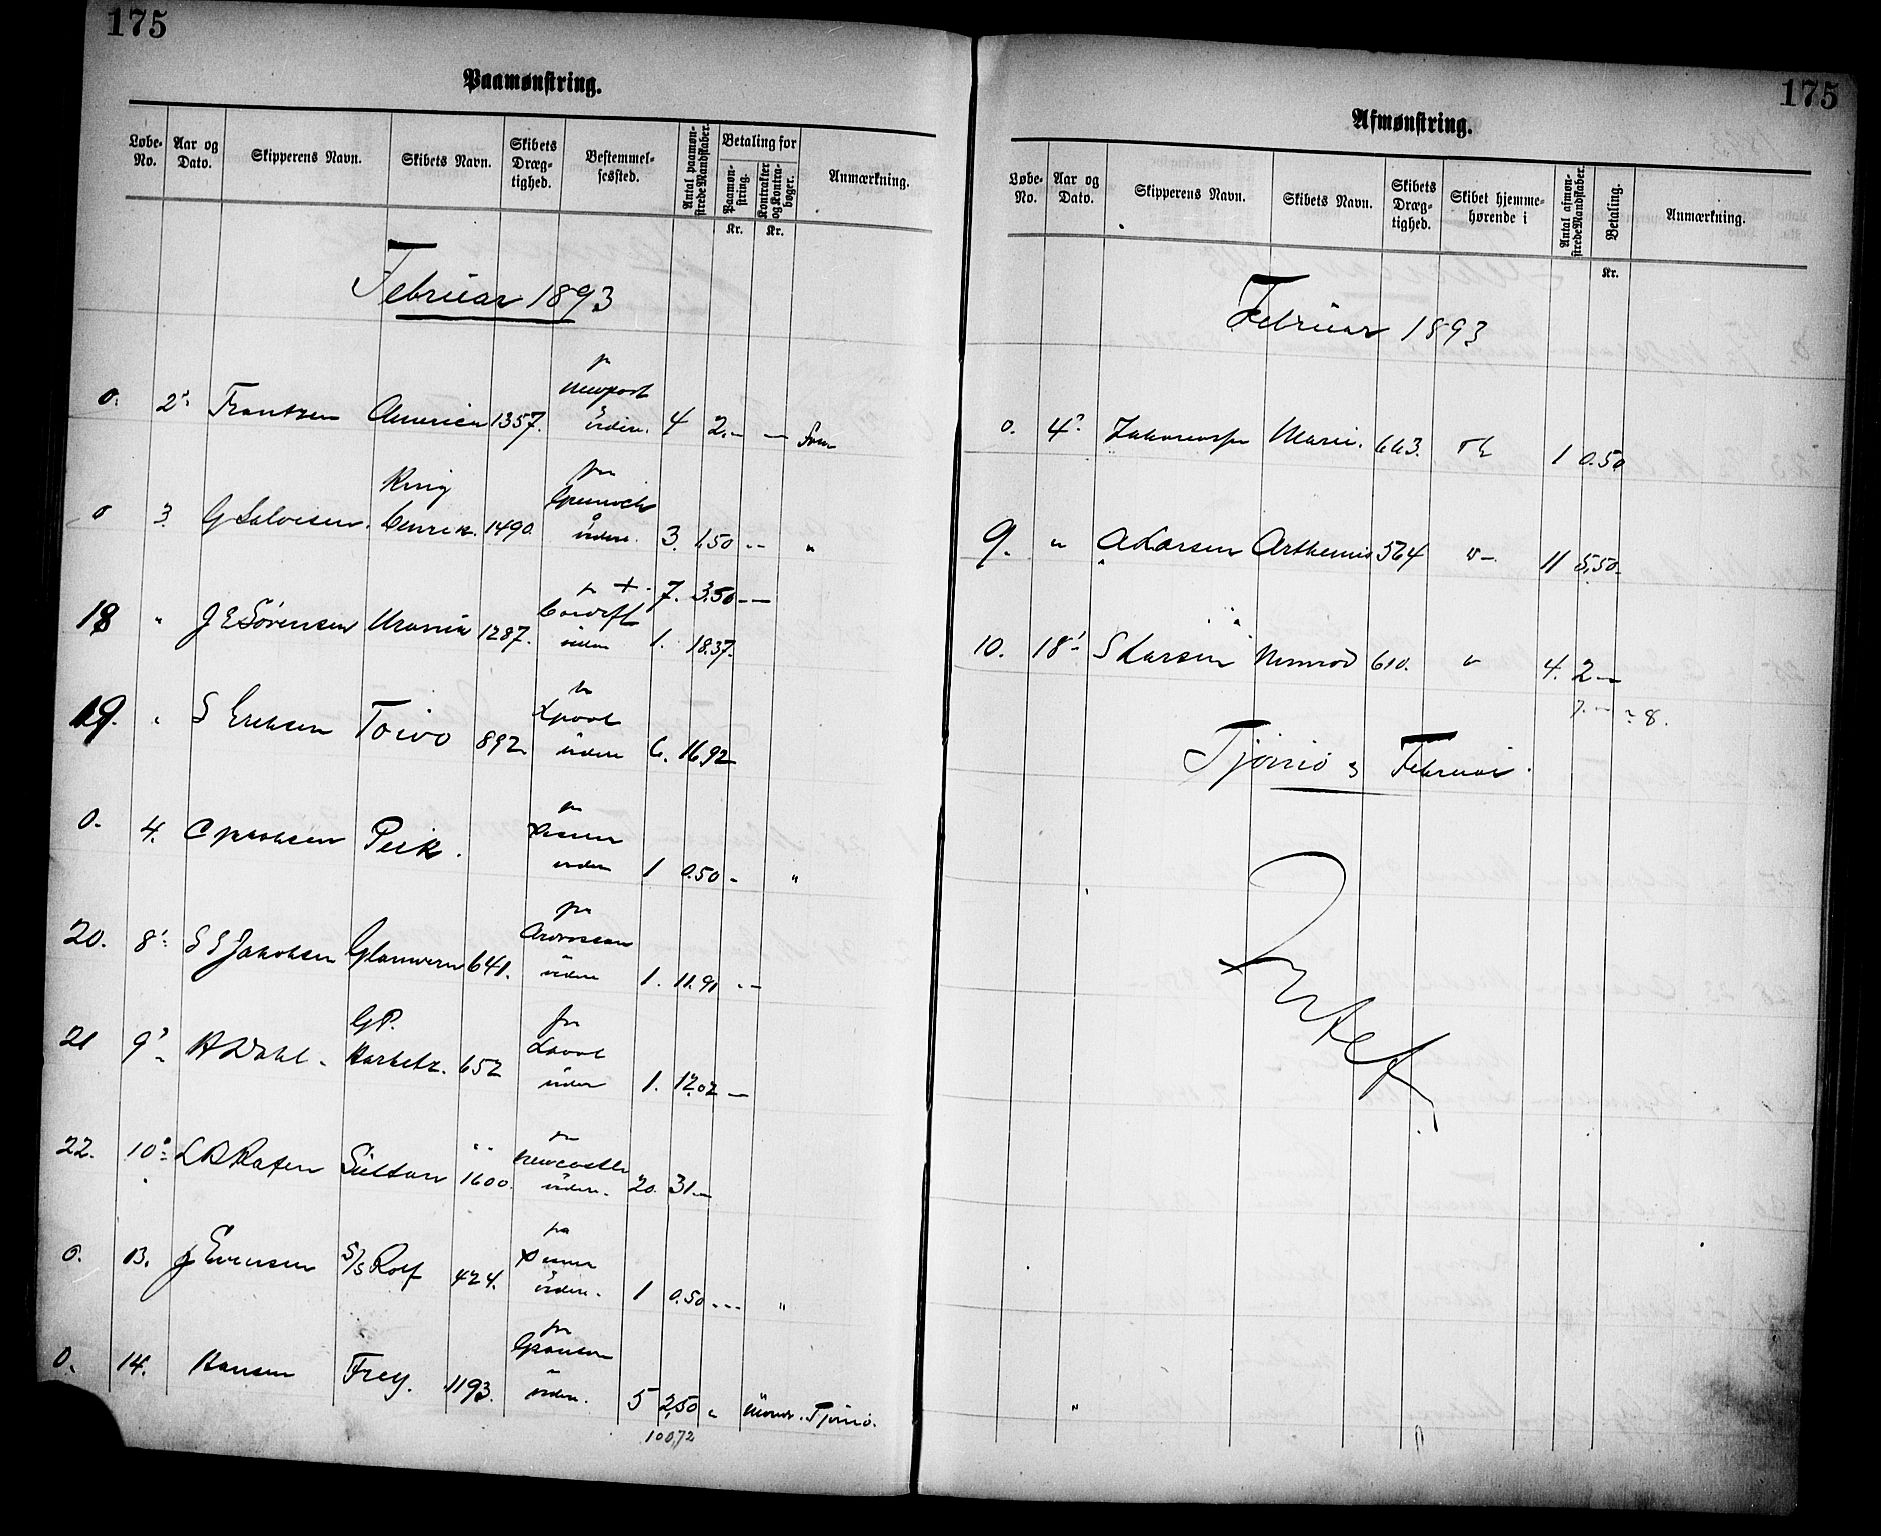 175
Paamønstring.
Løbe-No. Aar og Dato. Skipperens Navn. Skibets Navn. Skibets Dræg-tighed. Bestemmel-sessted. Antal paamøn-strede Mandskaber. Betaling for Paamøn-string. Kr. Kontrakter og Kontra-bøger. Kr. Anmærkning.
Februar 1893
0. 2' Frantzen America 1357. Newport videre. 4 2.— — Svm
0 3. G Salvesen. King Cenric. 1490. fra Greenock videre. 3. 1,50 -- "
18 " J E Sørensen Urania 1287. Cardiff viden 7. 3.50 — 1. 18.37.
19. " S Eriksen Toivo 892 Lpool videre 6. 16,92
0. 4. C Jacobsen Peik. viden 1 0.50 - "
20. 8' S E Jakobsen Glamwern 641. fra Ardrossan videre 1. 11.91 --
21 9' A Dahl. G P. Harbitz. 652 fra Lpool viden 1. 12.02 —
22. 10 L B Rafen Sultan 1600. Newcastle videre. 20. 31.—
0. 13. J Evensen S/S Rolf 424. fra videre. 1 0.50 --- "
0. 14. Hansen Frey. 1193. fra videre. 5 2,50 " Tjømø.
100,72
175
Afmønstring.
Løbe-No. Aar og Dato. Skipperens Navn. Skibets Navn. Skibets Dræg-tighed. Skibet hjemme-hørende i Antal afmøn-strede Mandskaber. Betaling. Kr. Anmærkning.
Februar 1893
0. 4' Marie. 663. 1 0.50
9. " A Larsen Arthemis 564 " 11 5,50
10. 18' S Larsen Nimrod 610. " 4. 2 —
7. — 8.
Tjømø 3 Februar.